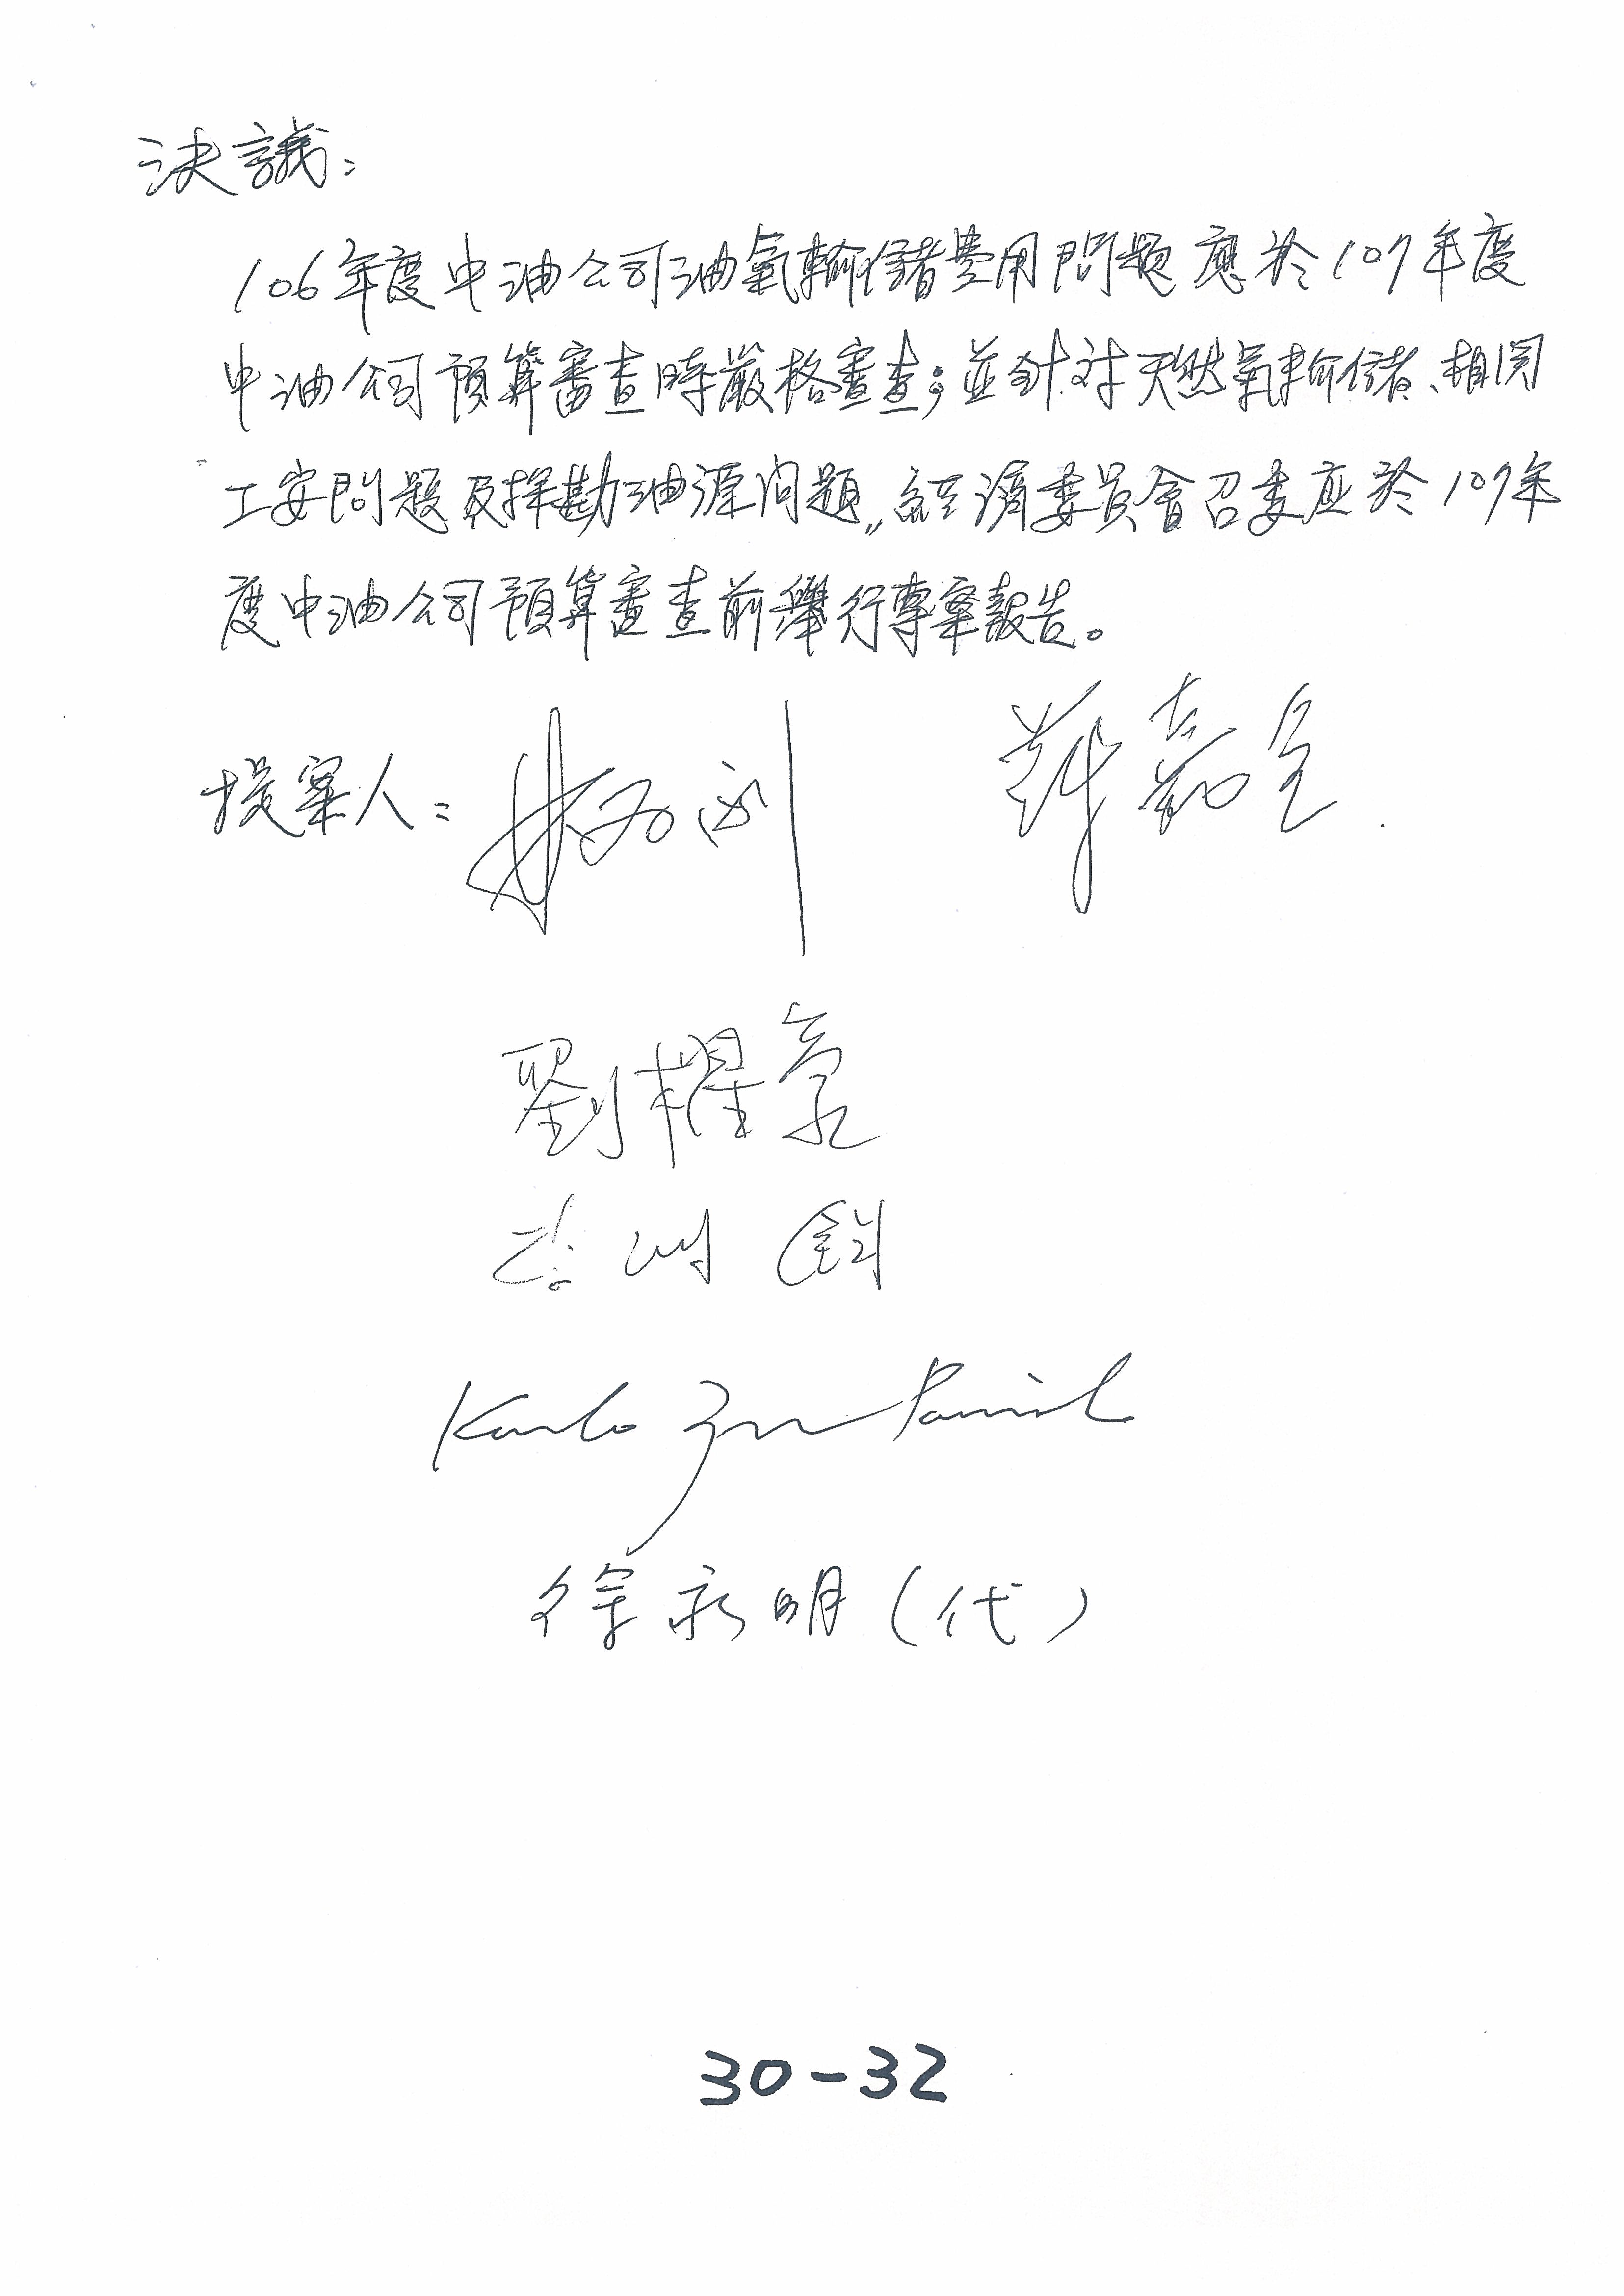 決議：
106年度中油公司油氣輸儲費用問題應於107年度
中油公司預算審查時嚴格審查；並針對天然氣輸儲、相関
工安問題及探勘油源問題，經濟委員會召委應於107年
度中油公司預算審查前舉行專案報告。
提案人：
蘇嘉全
劉櫂豪
徐永明（代）
30-32